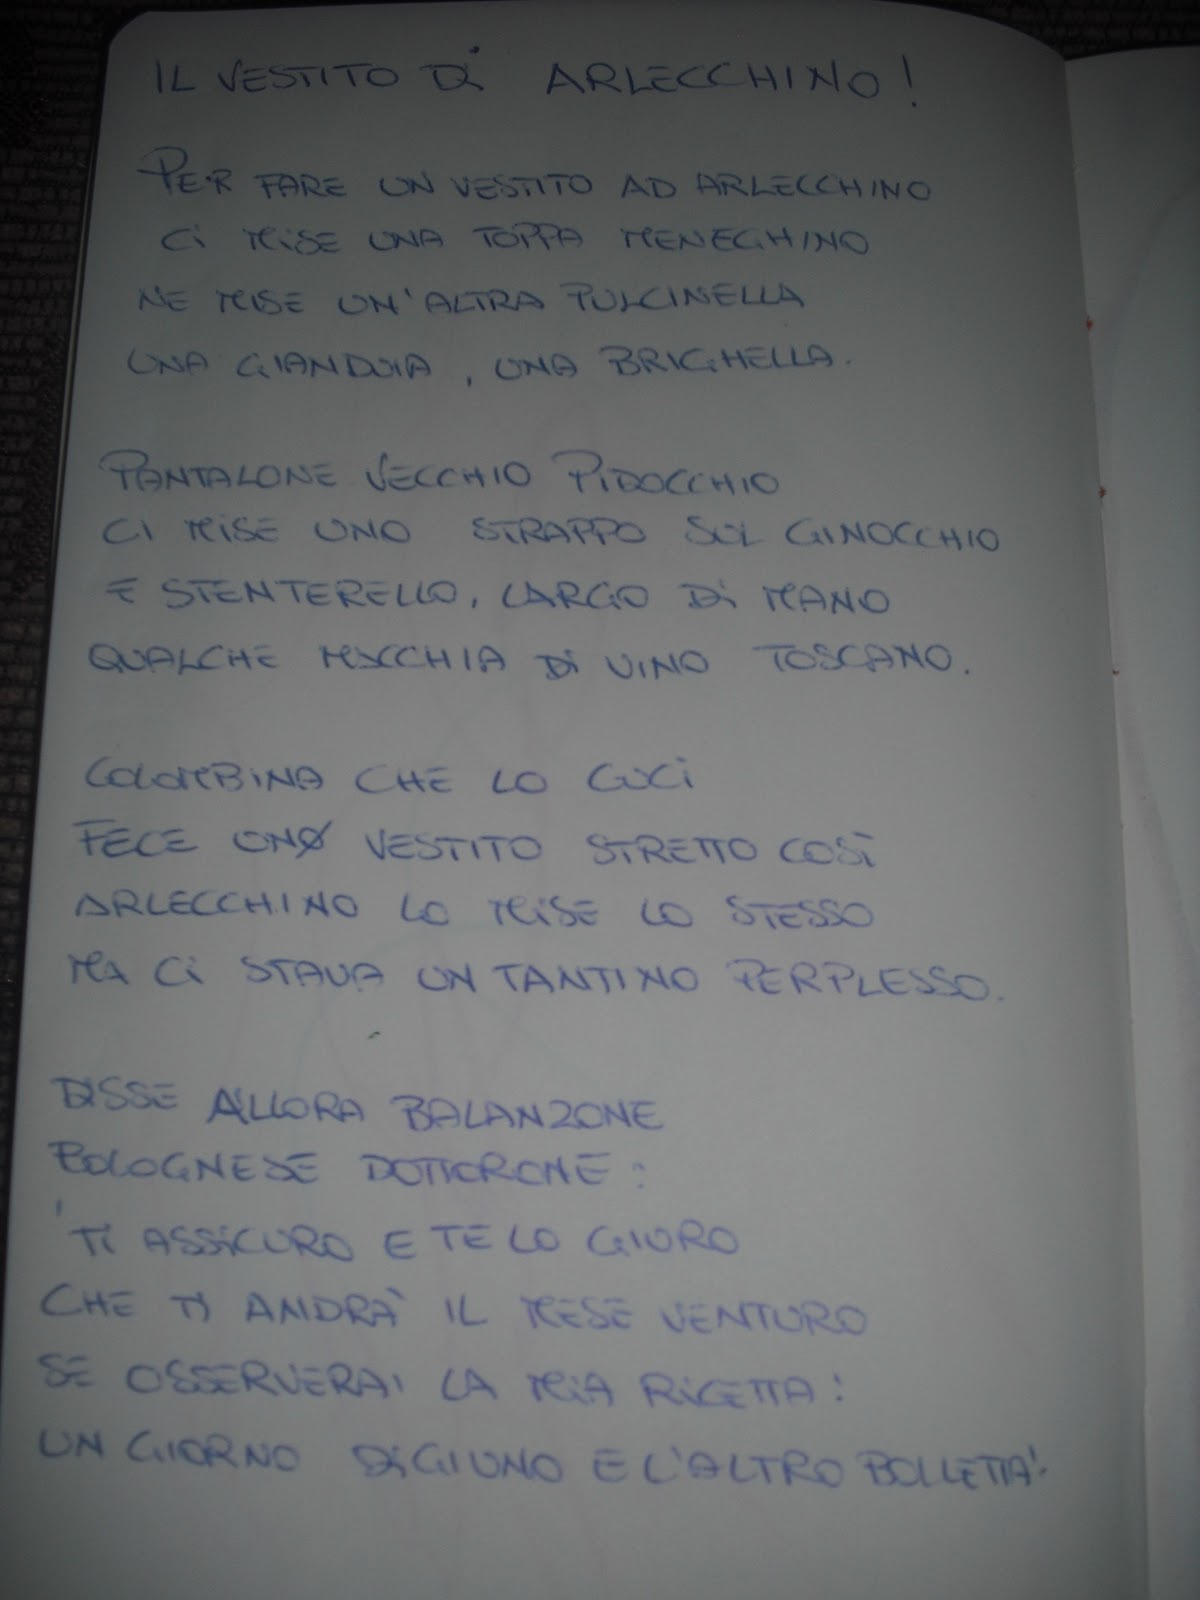 IL VESTITO DI ARLECCHINO!
PER FARE UN VESTITO AD ARLECCHINO
CI MISE UNA TOPPA MENEGHINO
NE MISE UN'ALTRA PULCINELLA
UNA GIANDUIA, UNA BRIGHELLA.
PANTALONE VECCHIO PIDOCCHIO
CI MISE UNO STRAPPO SUL GINOCCHIO
E STENTERELLO, LARGO DI MANO
QUALCHE MACCHIA DI VINO TOSCANO.
COLOMBINA CHE LO CUCI
FECE UN VESTITO STRETTO COSÌ
ARLECCHINO LO MISE LO STESSO
MA CI STAVA UN TANTINO PERPLESSO.
DISSE ALLORA BALANZONE
BOLOGNESE DOTTORONE:
'TI ASSICURO E TE LO GIURO
CHE TI ANDRÀ IL MESE VENTURO
SE OSSERVERAI LA MIA RICETTA:
UN GIORNO DIGIUNO E L'ALTRO BOLLETTA'.